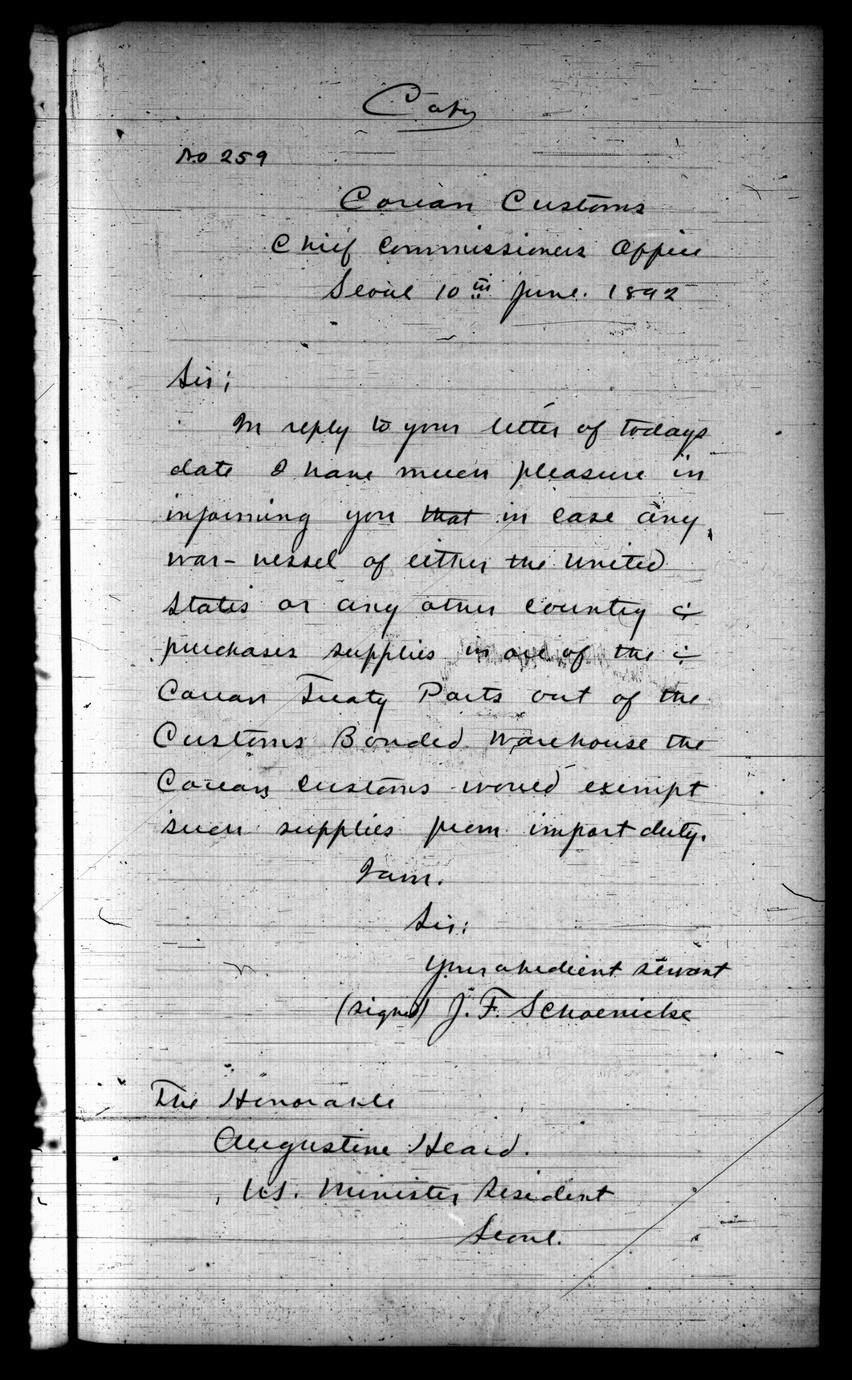 Copy
No 259
Corean Customs
Chief Commissioners Office
Seoul 10th June. 1892
Sir;
In reply to your letter of todays
date I have much pleasure in
informing you that in case any
war-vessel of either the United
States or any other country
purchases supplies in one of the
Corean Treaty Ports out of the
Customs Bonded Warehouse the
Corean Customs would exempt
such supplies from import duty.
I am.
Sir:
Your obedient servant
(signed) J. F. Schoenicke
The Honorable
Augustine Heard.
U.S. Minister Resident
Seoul.